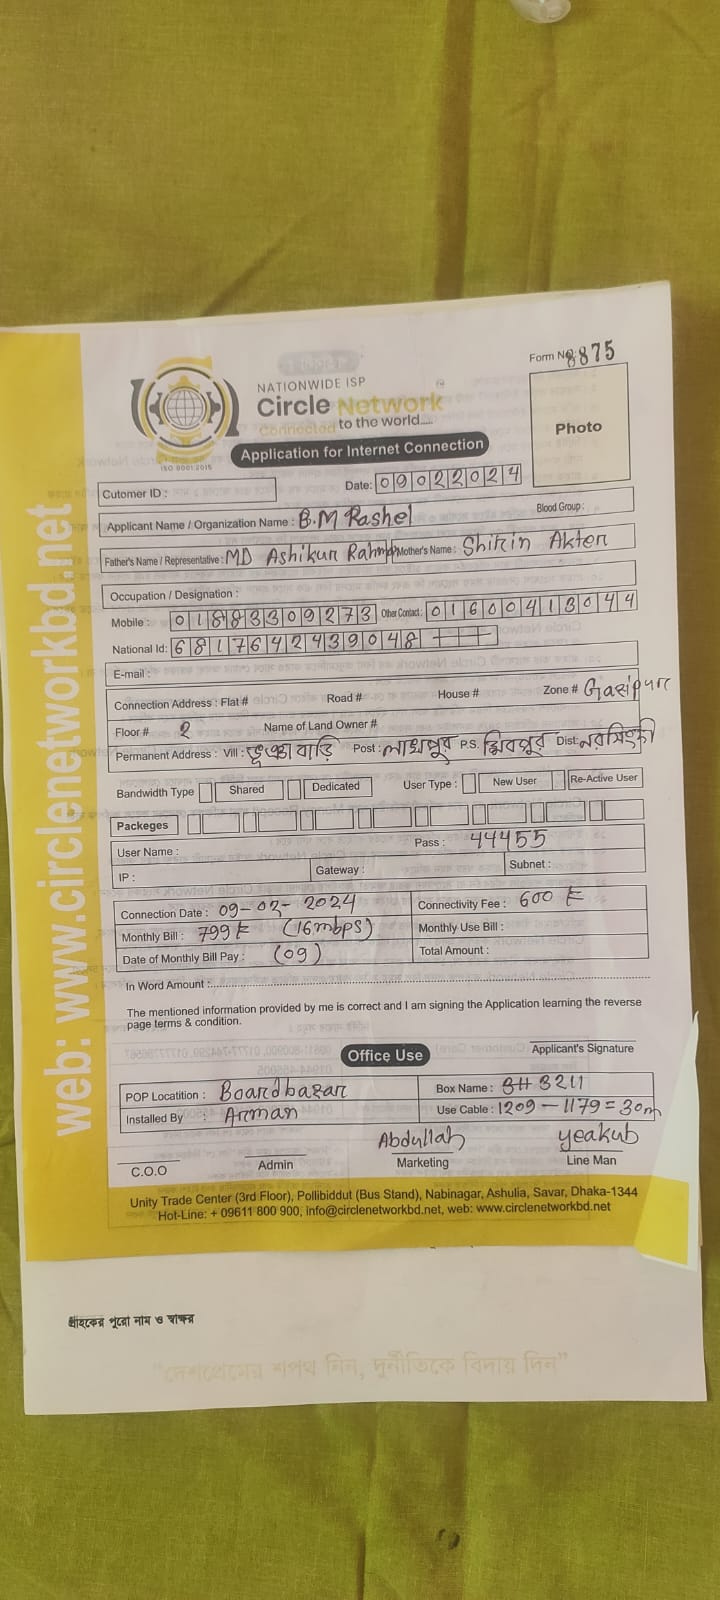 web: www.circlenetworkbd.net
Form No: 8875
NATIONWIDE ISP
Circle Network
Connected to the world.....
ISO 9001:2015
Application for Internet Connection
Photo
Cutomer ID :
Date: 09022024
Applicant Name / Organization Name : B.M Rashel Blood Group :
Father's Name / Representative : MD Ashikur Rahman Mother's Name : Shirin Akter
Occupation / Designation :
Mobile : 01883309273 Other Contact : 01600413044
National Id: 6817642439048
E-mail :
Connection Address : Flat # Road # House # Zone # Gazipur
Floor # 2 Name of Land Owner #
Permanent Address : Vill : বাড়ি Post : লাখপুর P.S. শিবপুর Dist: নরসিংদী
Bandwidth Type Shared Dedicated User Type : New User Re-Active User
Packeges
User Name : Pass : 44455
IP : Gateway : Subnet :
Connection Date : 09-02-2024 Connectivity Fee : 600 ৳
Monthly Bill : 799 ৳ (16mbps) Monthly Use Bill :
Date of Monthly Bill Pay : (09) Total Amount :
In Word Amount :
The mentioned information provided by me is correct and I am signing the Application learning the reverse
page terms & condition.
Office Use
Applicant's Signature
POP Locatition : Boardbazar Box Name : BH 3211
Installed By : Arman Use Cable : 1209 - 1179 = 30m
Abdullah yeakub
C.O.O Admin Marketing Line Man
Unity Trade Center (3rd Floor), Pollibiddut (Bus Stand), Nabinagar, Ashulia, Savar, Dhaka-1344
Hot-Line: + 09611 800 900, info@circlenetworkbd.net, web: www.circlenetworkbd.net
গ্রাহকের পুরো নাম ও স্বাক্ষর
"দেশপ্রেমের শপথ নিন, দুর্নীতিকে বিদায় দিন"